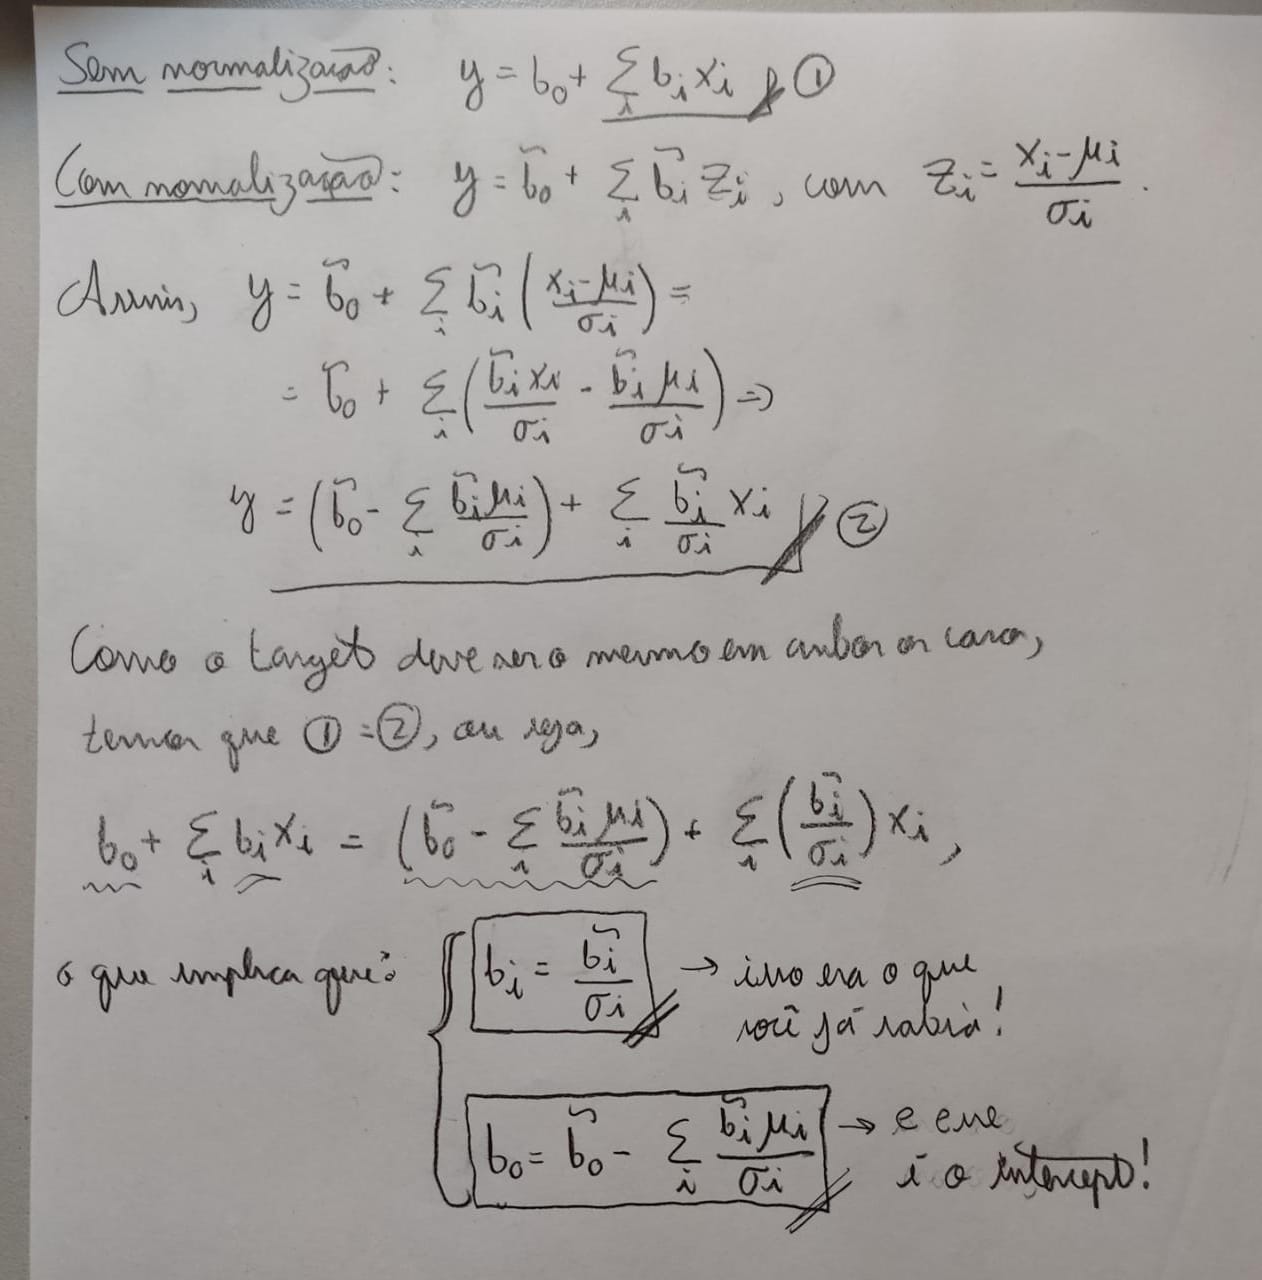 Sem normalização: y = b₀ + Σᵢ bᵢ xᵢ ①
Com normalização: y = b̃₀ + Σᵢ b̃ᵢ zᵢ, com zᵢ = (xᵢ - μᵢ)/σᵢ.
Assim, y = b̃₀ + Σᵢ b̃ᵢ ((xᵢ - μᵢ)/σᵢ) =
= b̃₀ + Σᵢ (b̃ᵢ xᵢ/σᵢ - b̃ᵢ μᵢ/σᵢ) ⇒
y = (b̃₀ - Σᵢ b̃ᵢ μᵢ/σᵢ) + Σᵢ b̃ᵢ/σᵢ xᵢ ②
Como o target deve ser o mesmo em ambos os casos,
temos que ① = ②, ou seja,
b₀ + Σᵢ bᵢ xᵢ = (b̃₀ - Σᵢ b̃ᵢ μᵢ/σᵢ) + Σᵢ (b̃ᵢ/σᵢ) xᵢ,
o que implica que: bᵢ = b̃ᵢ/σᵢ → isso era o que
você já sabia!
b₀ = b̃₀ - Σᵢ b̃ᵢ μᵢ/σᵢ → e esse
é o intercept!